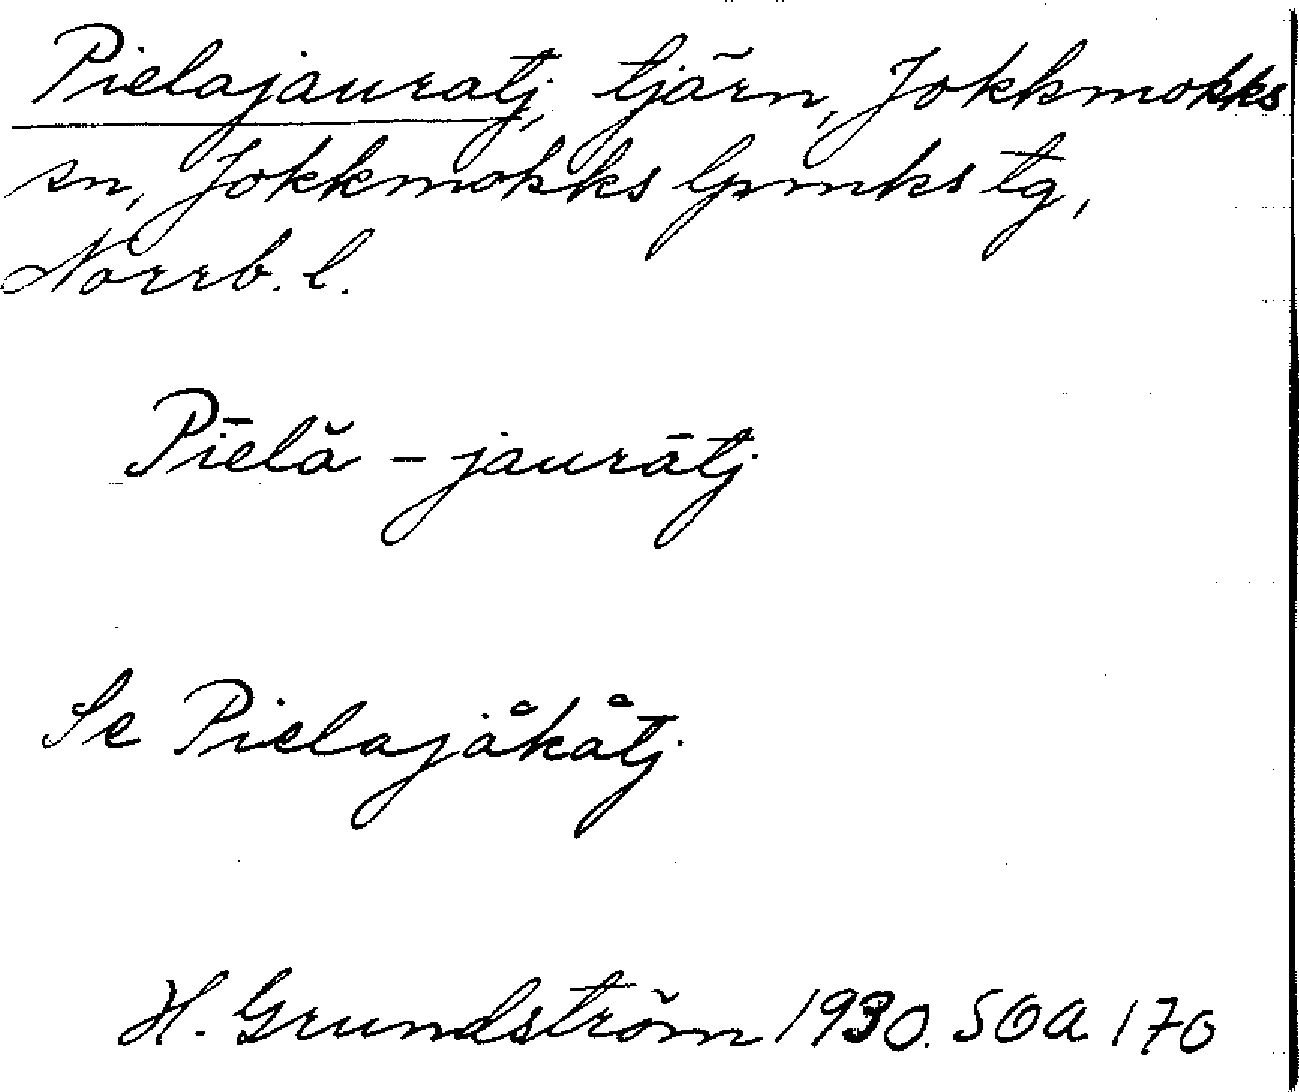 Pielajauratj, tjärn, Jokkmokks
sn, Jokkmokks lpmks tg,
Norrb. l.
Pi̅elă - jaurātj.
Se Pielajåkåtj.
H. Grundström 1930. SOA 170